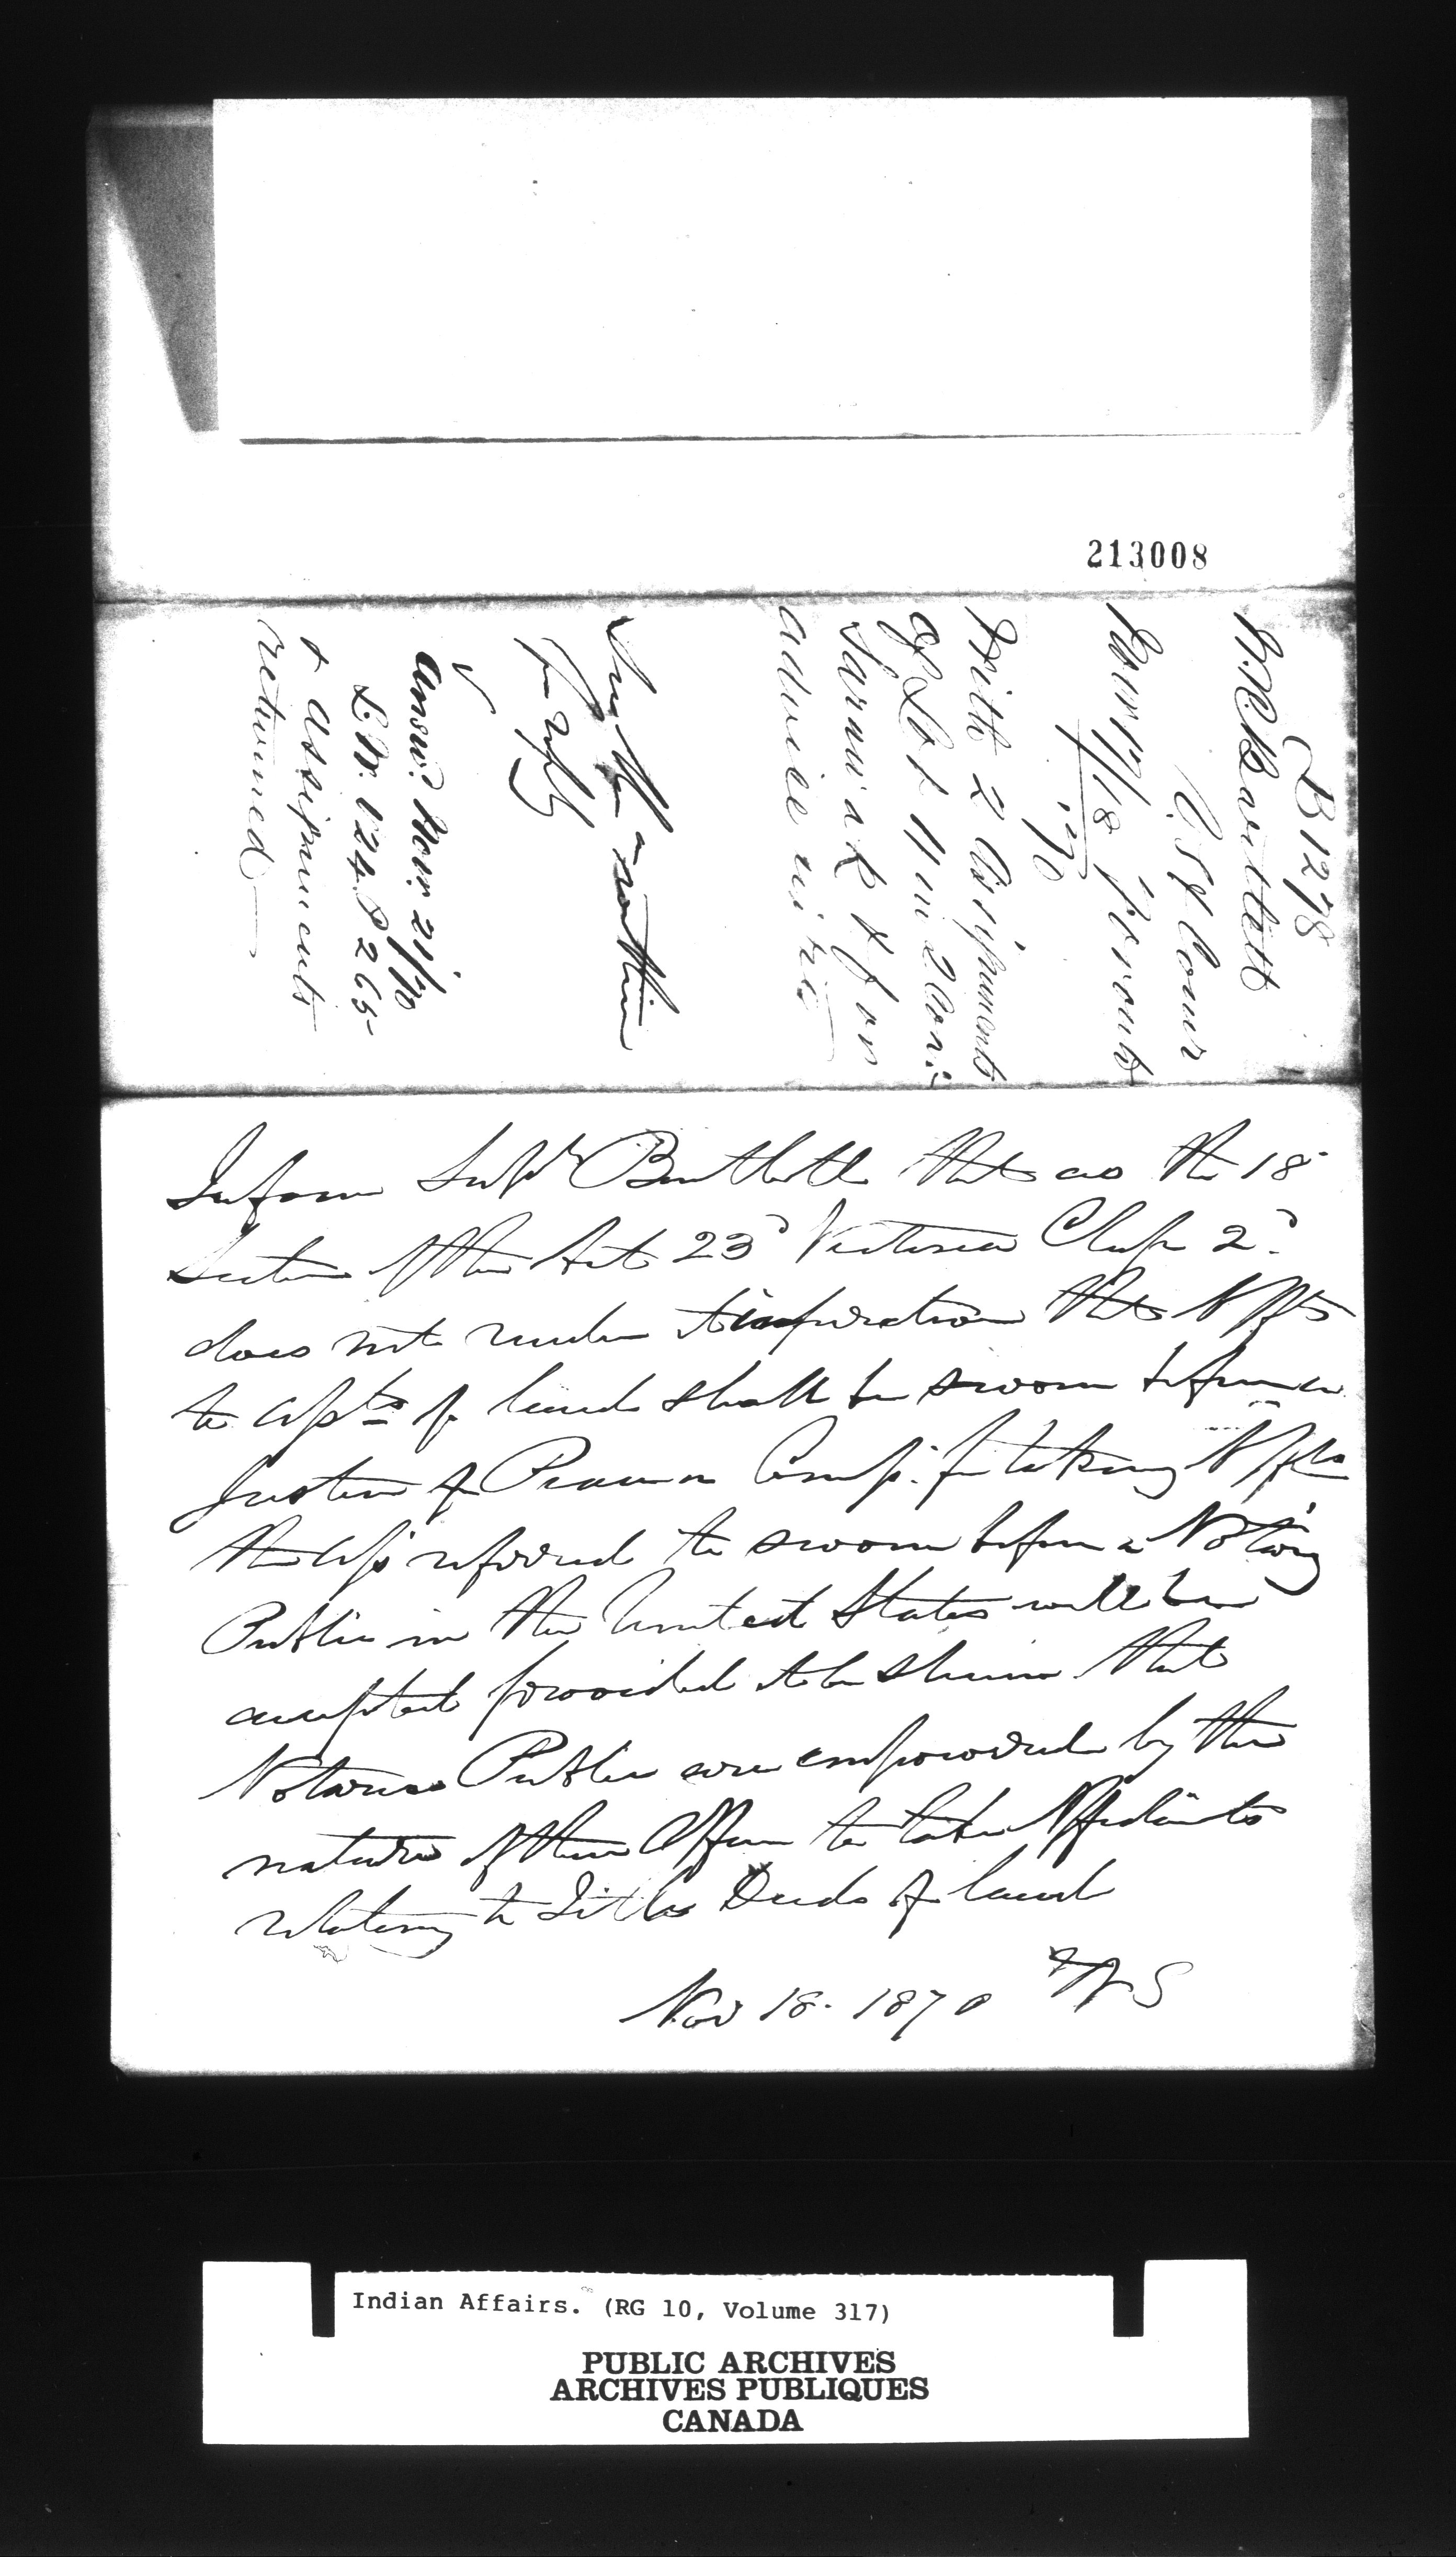 213008
B 1278
W. R. Bartlett
V. S. & Comr
Novr 17/18 Toronto
'70
With 2 Assignments
of Lot 11 in 2 Con:
Sarnia & for
advice &c
See the within
for reply
Answd Novr 21/70
L. B. 124. P 265
& assignments
returned
Inform Supt Bartlett that as the 18
Section of the Act 23d Victoria Chap 2d
does not render it imperative that Affts
to Asgts of land shall be sworn before a
Justice of Peace or Comp. for taking Affts
the Afft referred to sworn before a Notary
Public in the United States will be
accepted provided it be shewn that
Notaries Public are empowered by the
nature of their Office to take Affidavits
relating to Titles Deeds of land
Nov 18. 1870
Indian Affairs. (RG 10, Volume 317)
PUBLIC ARCHIVES
ARCHIVES PUBLIQUES
CANADA